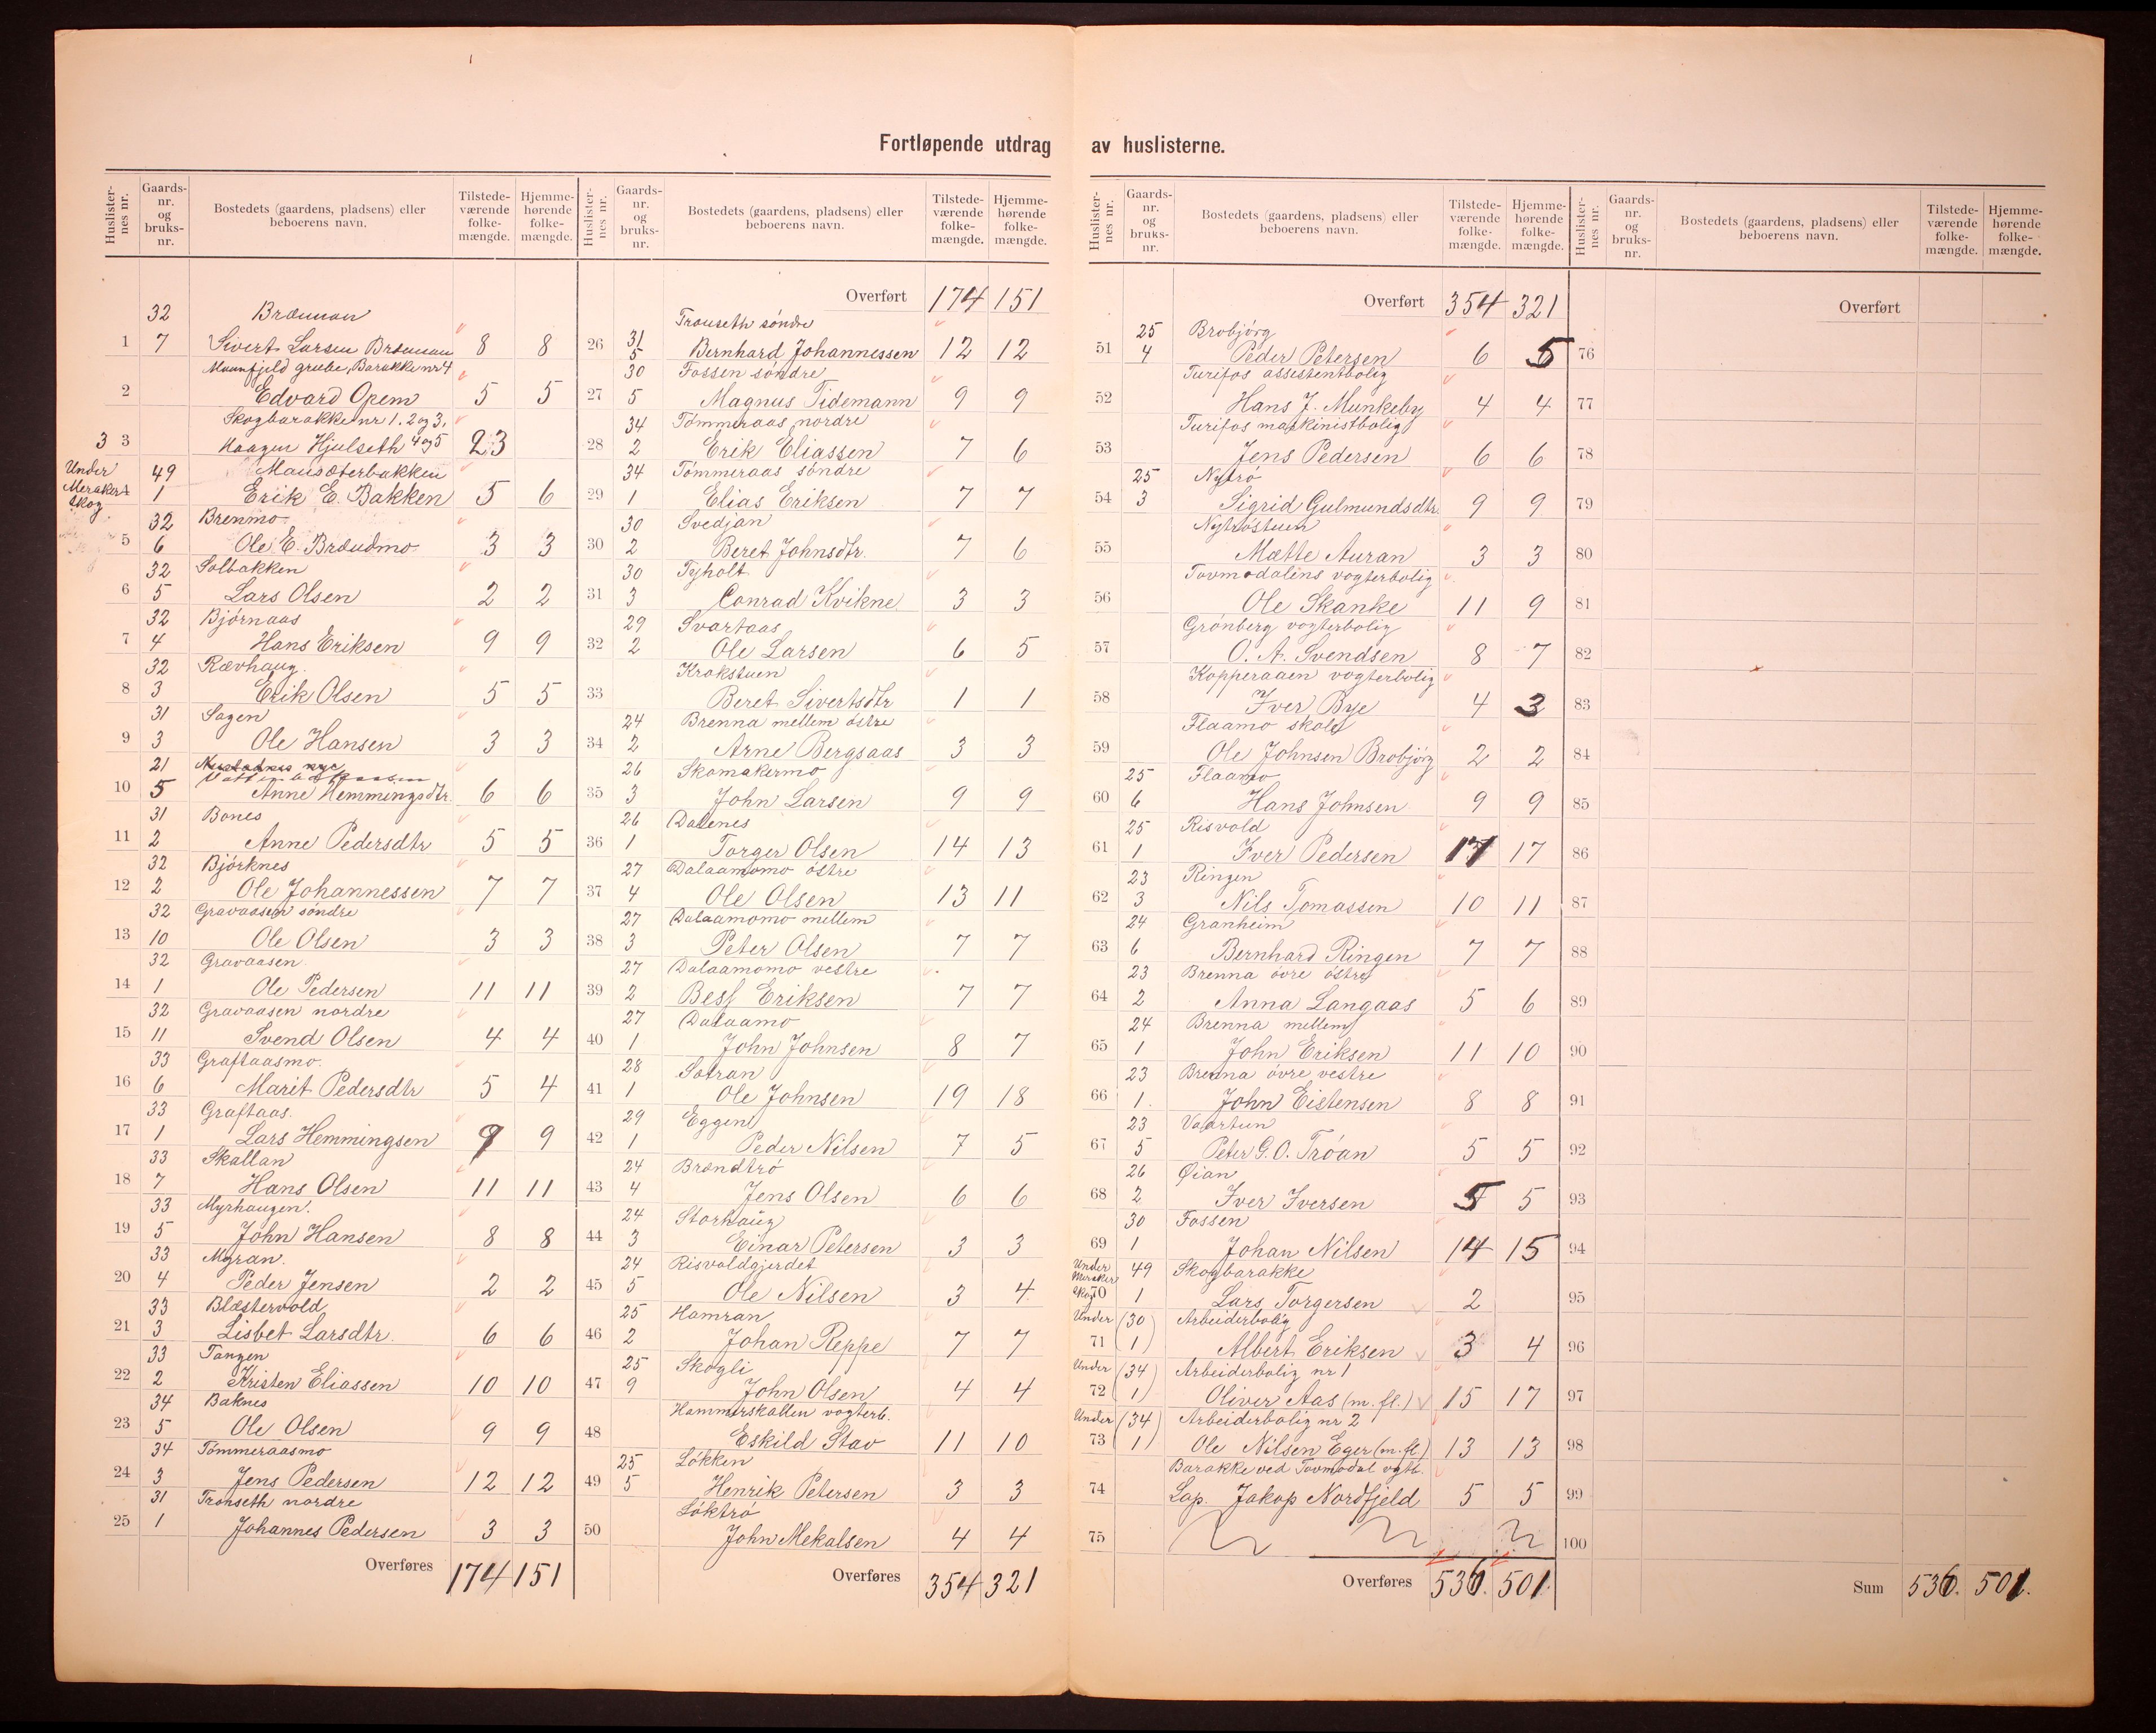 Fortløpende utdrag av huslisterne.
Huslister-nes nr. Gaards-nr. og bruks-nr. Bostedets (gaardens, pladsens) eller beboerens navn. Tilstede-værende folke-mængde. Hjemme-hørende folke-mængde.
32 Brænnan
1 7 Sivert Larsen Brænnan 8 8
Mannfjeld grube, Barakke nr 4
2 Edvard Opem 5 5
Skogbarakke nr 1. 2 og 3. 4 og 5
3 3 Haagen Hjulseth 23
Under Meraker skog 49 Mansæterbakken
4 1 Erik E. Bakken 5 6
32 Brenmo
5 6 Ole E. Brændmo 3 3
32 Solbakken
6 5 Lars Olsen 2 2
32 Bjørnaas
7 4 Hans Eriksen 9 9
32 Rævhaug.
8 3 Erik Olsen 5 5
31 Sagen
9 3 Ole Hansen 3 3
21
10 5 Anne Hemmingsdtr. 6 6
31 Bones
11 2 Anne Pedersdtr 5 5
32 Bjórknes
12 2 Ole Johannessen 7 7
32 Gravaasen søndre
13 10 Ole Olsen 3 3
32 Gravaasen
14 1 Ole Pedersen 11 11
32 Gravaasen nordre
15 11 Svend Olsen 4 4
33 Graftaasmo.
16 6 Marit Pedersdtr 5 4
33 Graftaas.
17 1 Lars Hemmingsen 9 9
33 Skallan
18 7 Hans Olsen 11 11
33 Myrhaugen.
19 5 John Hansen 8 8
33 Myran.
20 4 Peder Jensen 2 2
33 Blæstervold
21 3 Lisbet Larsdtr. 6 6
33 Tangen
22 2 Kristen Eliassen 10 10
34 Baknes
23 5 Ole Olsen 9 9
34 Tómmeraasmo
24 3 Jens Pedersen 12 12
31 Tronseth nordre
25 1 Johannes Pedersen 3 3
Overføres 174 151
Huslister-nes nr. Gaards-nr. og bruks-nr. Bostedets (gaardens, pladsens) eller beboerens navn. Tilstede-værende folke-mængde. Hjemme-hørende folke-mængde.
Overført 174 151
31 Tronseth søndre
26 5 Bernhard Johannessen 12 12
30 Fossen søndre
27 5 Magnus Tidemann 9 9
34 Tómmeraas nordre
28 2 Erik Eliassen 7 6
34 Tómmeraas søndre
29 1 Elias Eriksen 7 7
30 Svedjan
30 2 Beret Johnsdtr. 7 6
30 Tyholt
31 3 Conrad Kvikne 3 3
29 Svartaas
32 2 Ole Larsen 6 5
Krokstuen
33 Beret Sivertsdtr 1 1
24 Brenna mellem óstre
34 2 Arne Bergsaas 3 3
26 Skomakermo
35 3 John Larsen 9 9
26 Dalenes
36 1 Torger Olsen 14 13
27 Dalaamomo óstre
37 4 Ole Olsen 13 11
27 Dalaamomo mellem
38 3 Peter Olsen 7 7
27 Dalaamomo vestre
39 2 Bess Eriksen 7 7
27 Dalaamo
40 1 John Johnsen 8 7
28 Sotran
41 1 Ole Johnsen 19 18
29 Eggen
42 1 Peder Nilsen 7 5
24 Brændtró
43 4 Jens Olsen 6 6
24 Storhaug
44 3 Einar Petersen 3 3
24 Risvoldgjerdet
45 5 Ole Nilsen 3 4
25 Hamran
46 2 Johan Reppe 7 7
25 Skogli
47 9 John Olsen 4 4
Hammerskallen vogterb.
48 Eskild Stav 11 10
25 Lókken
49 5 Henrik Petersen 3 3
Lóktró
50 John Mekalsen 4 4
Overføres 354 321
Huslister-nes nr. Gaards-nr. og bruks-nr. Bostedets (gaardens, pladsens) eller beboerens navn. Tilstede-værende folke-mængde. Hjemme-hørende folke-mængde.
Overført 354 321
25 Brobjórg
51 4 Peder Petersen 6 5
Turifos assistentbolig
52 Hans J. Munkeby 4 4
Turifos maskinistbolig
53 Jens Pedersen 6 6
25 Nytró
54 3 Sigrid Gulmundsdtr. 9 9
Nytróstuen
55 Mætte Auran 3 3
Tovmodalens vogterbolig
56 Ole Skanke 11 9
Grónberg vogterbolig
57 O. A. Svendsen 8 7
Kopperaaen vogterbolig
58 Iver Bye 4 3
Flaamo skole
59 Ole Johnsen Brobjórg 2 2
25 Flaamo
60 6 Hans Johnsen 9 9
25 Risvold
61 1 Iver Pedersen 17 17
23 Ringen
62 3 Nils Tomassen 10 11
24 Granheim
63 6 Bernhard Ringen 7 7
23 Brenna óvre óstre
64 2 Anna Langaas 5 6
24 Brenna mellem
65 1 John Eriksen 11 10
23 Brenna óvre vestre
66 1. John Eistensen 8 8
23 Vaartun
67 5 Peter G. O. Tróan 5 5
26 Øian
68 2 Iver Iversen 5 5
30 Fossen
69 1 Johan Nilsen 14 15
Under Meraker skog 49 Skogbarakke
70 1 Lars Torgersen 2
Under (30) Arbeiderbolig
71 (1) Albert Eriksen 3 4
Under (34) Arbeiderbolig nr 1
72 (1) Oliver Aas (m. fl.) 15 17
Under (34) Arbeiderbolig nr 2
73 (1) Ole Nilsen Eger (m. fl.) 13 13
Barakke ved Tovmodal vgtb.
74 Lap. Jakop Nordfjeld 5 5
75
Overføres 536. 501.
Huslister-nes nr. Gaards-nr. og bruks-nr. Bostedets (gaardens, pladsens) eller beboerens navn. Tilstede-værende folke-mængde. Hjemme-hørende folke-mængde.
Overført
76
77
78
79
80
81
82
83
84
85
86
87
88
89
90
91
92
93
94
95
96
97
98
99
100
Sum 536. 501.